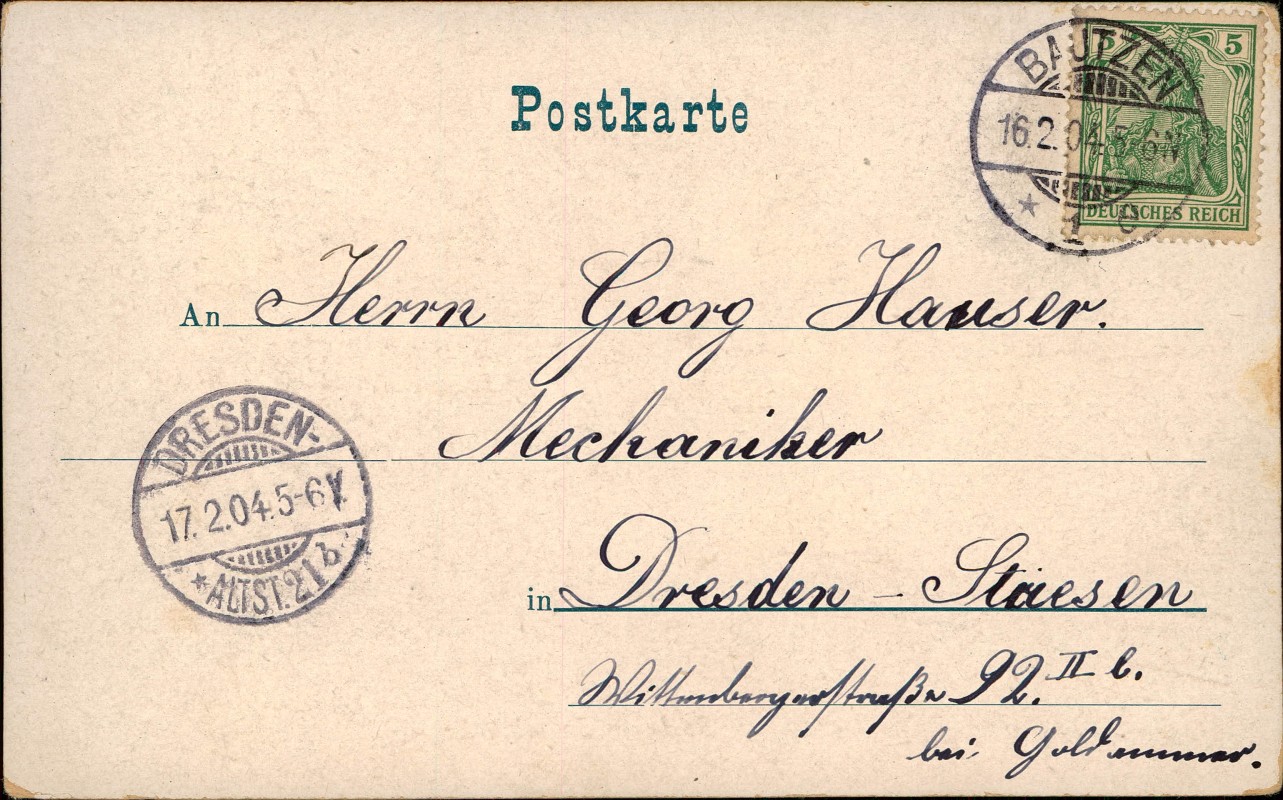 Postkarte
BAUTZEN
16.2.04. 5-6N
* 1 c
5 5
DEUTSCHES REICH
An Herrn Georg Hauser.
Mechaniker
DRESDEN-
17.2.04. 5-6V.
* ALTST. 21 b
in Dresden - Staesen
Wittenbergerstraße 92. II l.
bei Goldammer.